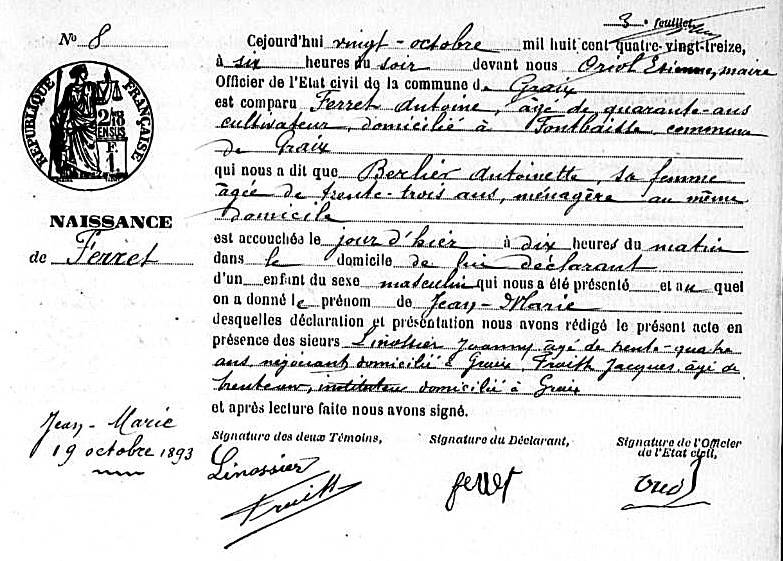 3e feuillet
No 8
Cejourd'hui vingt-octobre mil huit cent quatre-vingt-treize,
à six heures du soir devant nous Oriol Etienne, maire
Officier de l'Etat civil de la commune de Graix
est comparu Ferret Antoine, âgé de quarante-ans
cultivateur, domicilié à Fontbaisse, commune
de Graix
qui nous a dit que Berlier Antoinette, sa femme
âgée de trente-trois ans, ménagère au même
domicile
est accouchée le jour d'hier à dix heures du matin
dans le domicile de lui déclarant
d'un enfant du sexe masculin qui nous a été présenté et au quel
on a donné le prénom de Jean-Marie
desquelles déclaration et présentation nous avons rédigé le présent acte en
présence des sieurs Linossier Joanny âgé de trente-quatre
ans, négociant domicilié à Graix, Fruitt Jacques, âgé de
trente un, instituteur domicilié à Graix
et après lecture faite nous avons signé.
REPUBLIQUE FRANÇAISE
NAISSANCE
de Ferret
Jean-Marie
19 octobre 1893
Signature des deux Témoins, Signature du Déclarant, Signature de l'Officier
de l'Etat civil,
Linossier ferret